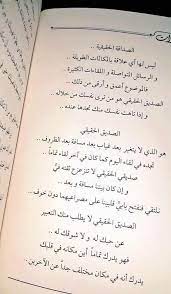 الصداقة الحقيقية ..
ليس لها أي علاقة بالمكالمات الطويلة ..
و الرسائل المتواصلة و اللقاءات الكثيرة ..
فالموضوع أعمق و أرقى من ذلك ..
الصديق الحقيقي هو من ترى نفسك من خلاله ..
و إن تاهت نفسك منك تجدها عنده ..
الصديق الحقيقي
هو الذي لا يتغير بعد غياب بعد مسافة بعد الظروف ..
تجده في لقاء اليوم كما كان في آخر لقاء تماماً ..
فالصديق الحقيقي لا تتزعزع ثقته فيَّ
و إن كان بيننا مسافة و بعد ..
نلتقي فنفتح بابيّ قلبينا على مصراعيهما دون خوف ..
الصديق الحقيقي لا يطلب منك التعبير
عن حبك له و لا شوقك له
فهو يدرك تماماً أين مكانه في قلبك
يدرك أنه في مكان مختلف جداً عن الآخرين ..